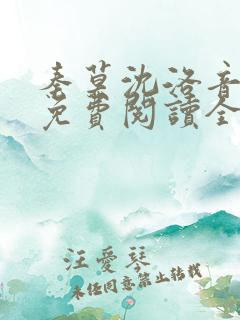 秦墓沈洛音
免費閱讀全
汪愛琴
未經同意禁止轉載